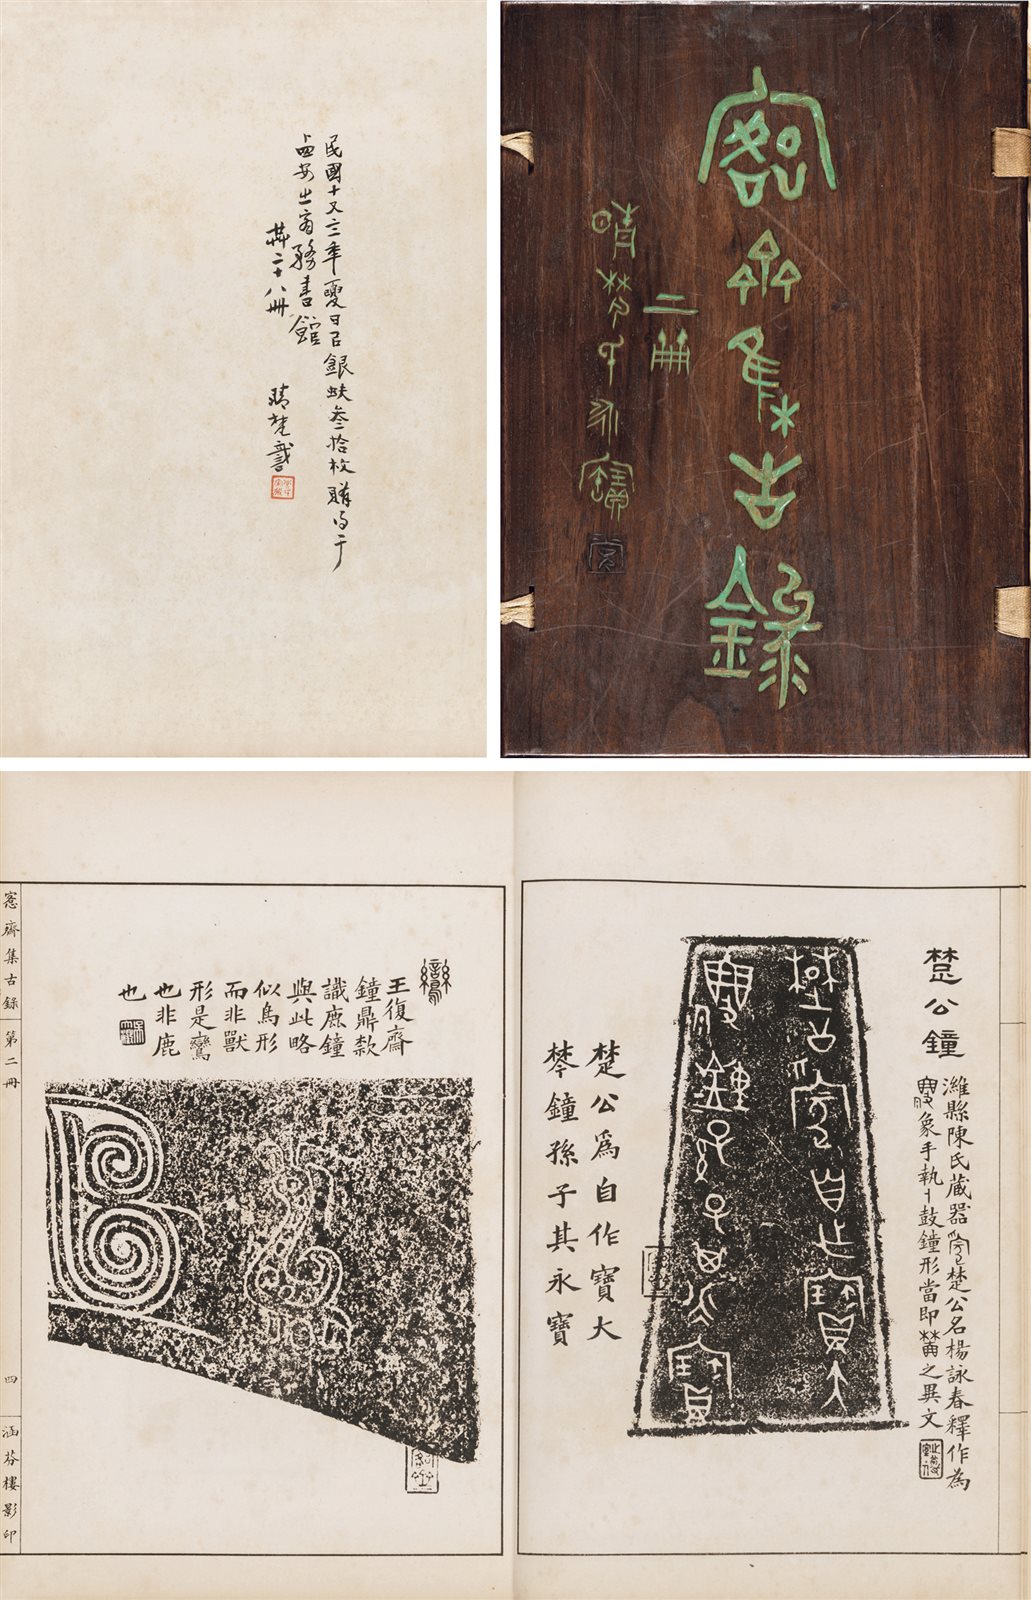 民國十又三年夏日㠯銀蚨叁拾枚購得于
西安之商務書館
共二十八冊
晴梵識
愙齋集古錄
二冊
晴梵永寶
楚公鐘
濰縣陳氏藏器楚公名楊詠春釋作為
象手執丨鼓鐘形當即之異文
楚公為自作寶大
鐘孫子其永寶
王復齋
鐘鼎款
識鹿鐘
與此略
似鳥形
而非獸
形是鸞
也非鹿
也
愙齋集古錄 第二冊 四 涵芬樓影印